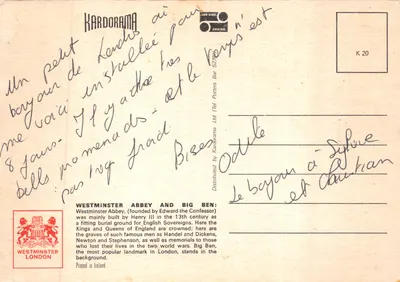 KARDORAMA
K 20
Un petit
bonjour de Londres où
me voici installée pour
8 jours. Il y a de très
belles promenades. et le temps n'est
pas trop froid.
Bises Odile
Le bonjour à Sylvie
et Christian
Distributed by Kardorama Ltd (Tel Potters Bar
WESTMINSTER ABBEY AND BIG BEN:
Westminster Abbey, (founded by Edward the Confessor)
was mainly built by Henry III in the 13th century as
a fitting burial ground for English Sovereigns. Here the
Kings and Queens of England are crowned; here are
the graves of such famous men as Handel and Dickens,
Newton and Stephenson, as well as memorials to those
who lost their lives in the two world wars. Big Ben,
the most popular landmark in London, stands in the
background.
Printed in Ireland
WESTMINSTER
LONDON